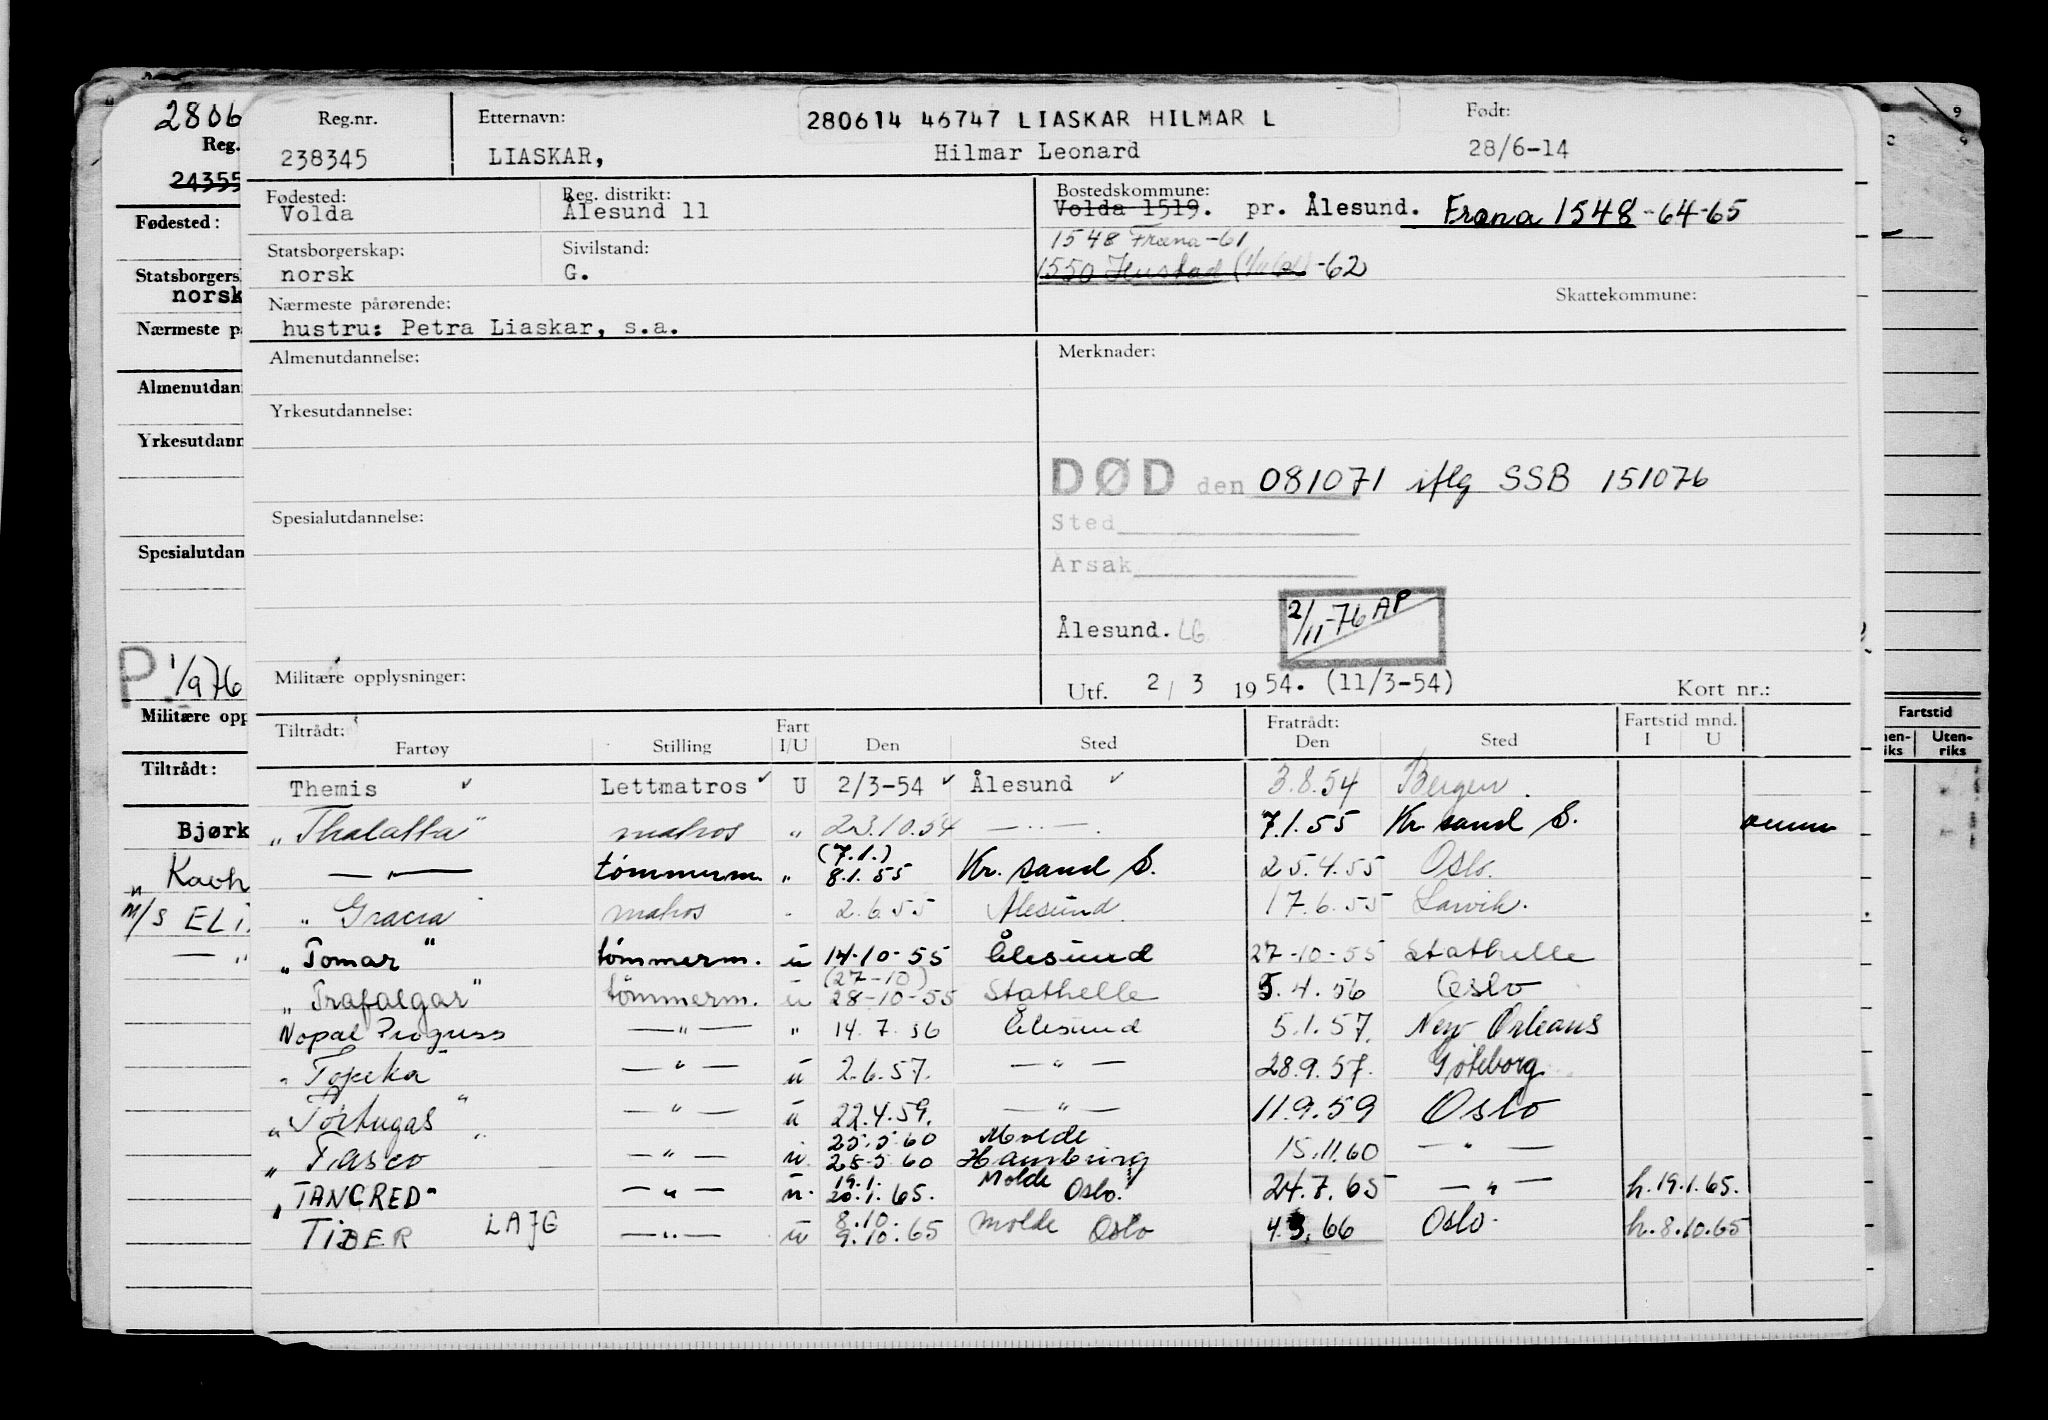 2806
Reg.
24355
Fødested:
Statsborgersk
norsk
Nærmeste p
Almenutdann
Yrkesutdann
Spesialutdan
P 1/9 76
Militære opp
Tiltrådt:
Bjørk
" Kavh
M/S ELI
— "
Reg.nr. Etternavn: 280614 46747 LIASKAR HILMAR L Født:
238345 LIASKAR, Hilmar Leonard 28/6-14
Fødested: Reg. distrikt: Bostedskommune:
Volda Ålesund 11 Volda 1519. pr. Ålesund. Fræna 1548-64-65
1548 Fræna-61
Statsborgerskap: Sivilstand:
norsk G. 1550 Hustad -62
Nærmeste pårørende: Skattekommune:
hustru: Petra Liaskar, s.a.
Almenutdannelse: Merknader:
Yrkesutdannelse:
DØD den 081071 iflg SSB 151076
Spesialutdannelse: Sted
Årsak
Ålesund. LG 2/11-76 AP
Militære opplysninger: Utf. 2/3 1954. (11/3-54) Kort nr.:
Tiltrådt: Fart Fratrådt: Fartstid mnd.
Fartøy Stilling I/U Den Sted Den Sted I U
Themis ✓ Lettmatros ✓ U 2/3-54 ✓ Ålesund ✓ 3.8.54 Bergen.
"Thalatta" matros " 23.10.54 — " —. 7.1.55 Kr. sand S.
— " — tømmerm. " (7.1.) 8.1.55 Kr. sand S. 25.4.55 Oslo.
" Gracia matros " 2.6.55 Ålesund. 17.6.55 Larvik.
"Tomar" tømmerm. u 14-10-55 Ålesund 27-10-55 Stathelle
"Trafalgar" tømmerm. u (27-10) 28-10-55 Stathelle 5.4.56 Oslo
Nopal Progress — " — " 14.7.56 Ålesund 5.1.57. New Orleans
" Topeka — " — u 2.6.57. — " — 28.9.57. Göteborg
"Tortugas" — " — u 22.4.59. — " — 11.9.59 Oslo
" Tasco " — " — u. 25.5.60 Molde
28.5.60 Hamburg 15.11.60 — " —
"TANCRED" — " — u. 19.1. 20.1.65. Molde Oslo. 24.7.65 — " — h.19.1.65.
TIBER LAJG — " — u 8.10. 9.10.65 Molde Oslo 4.3.66 Oslo. h.8.10.65
Fartstid
nen-
iks
Uten-
riks